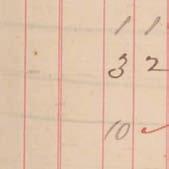 1 1
3 2
10 ✓